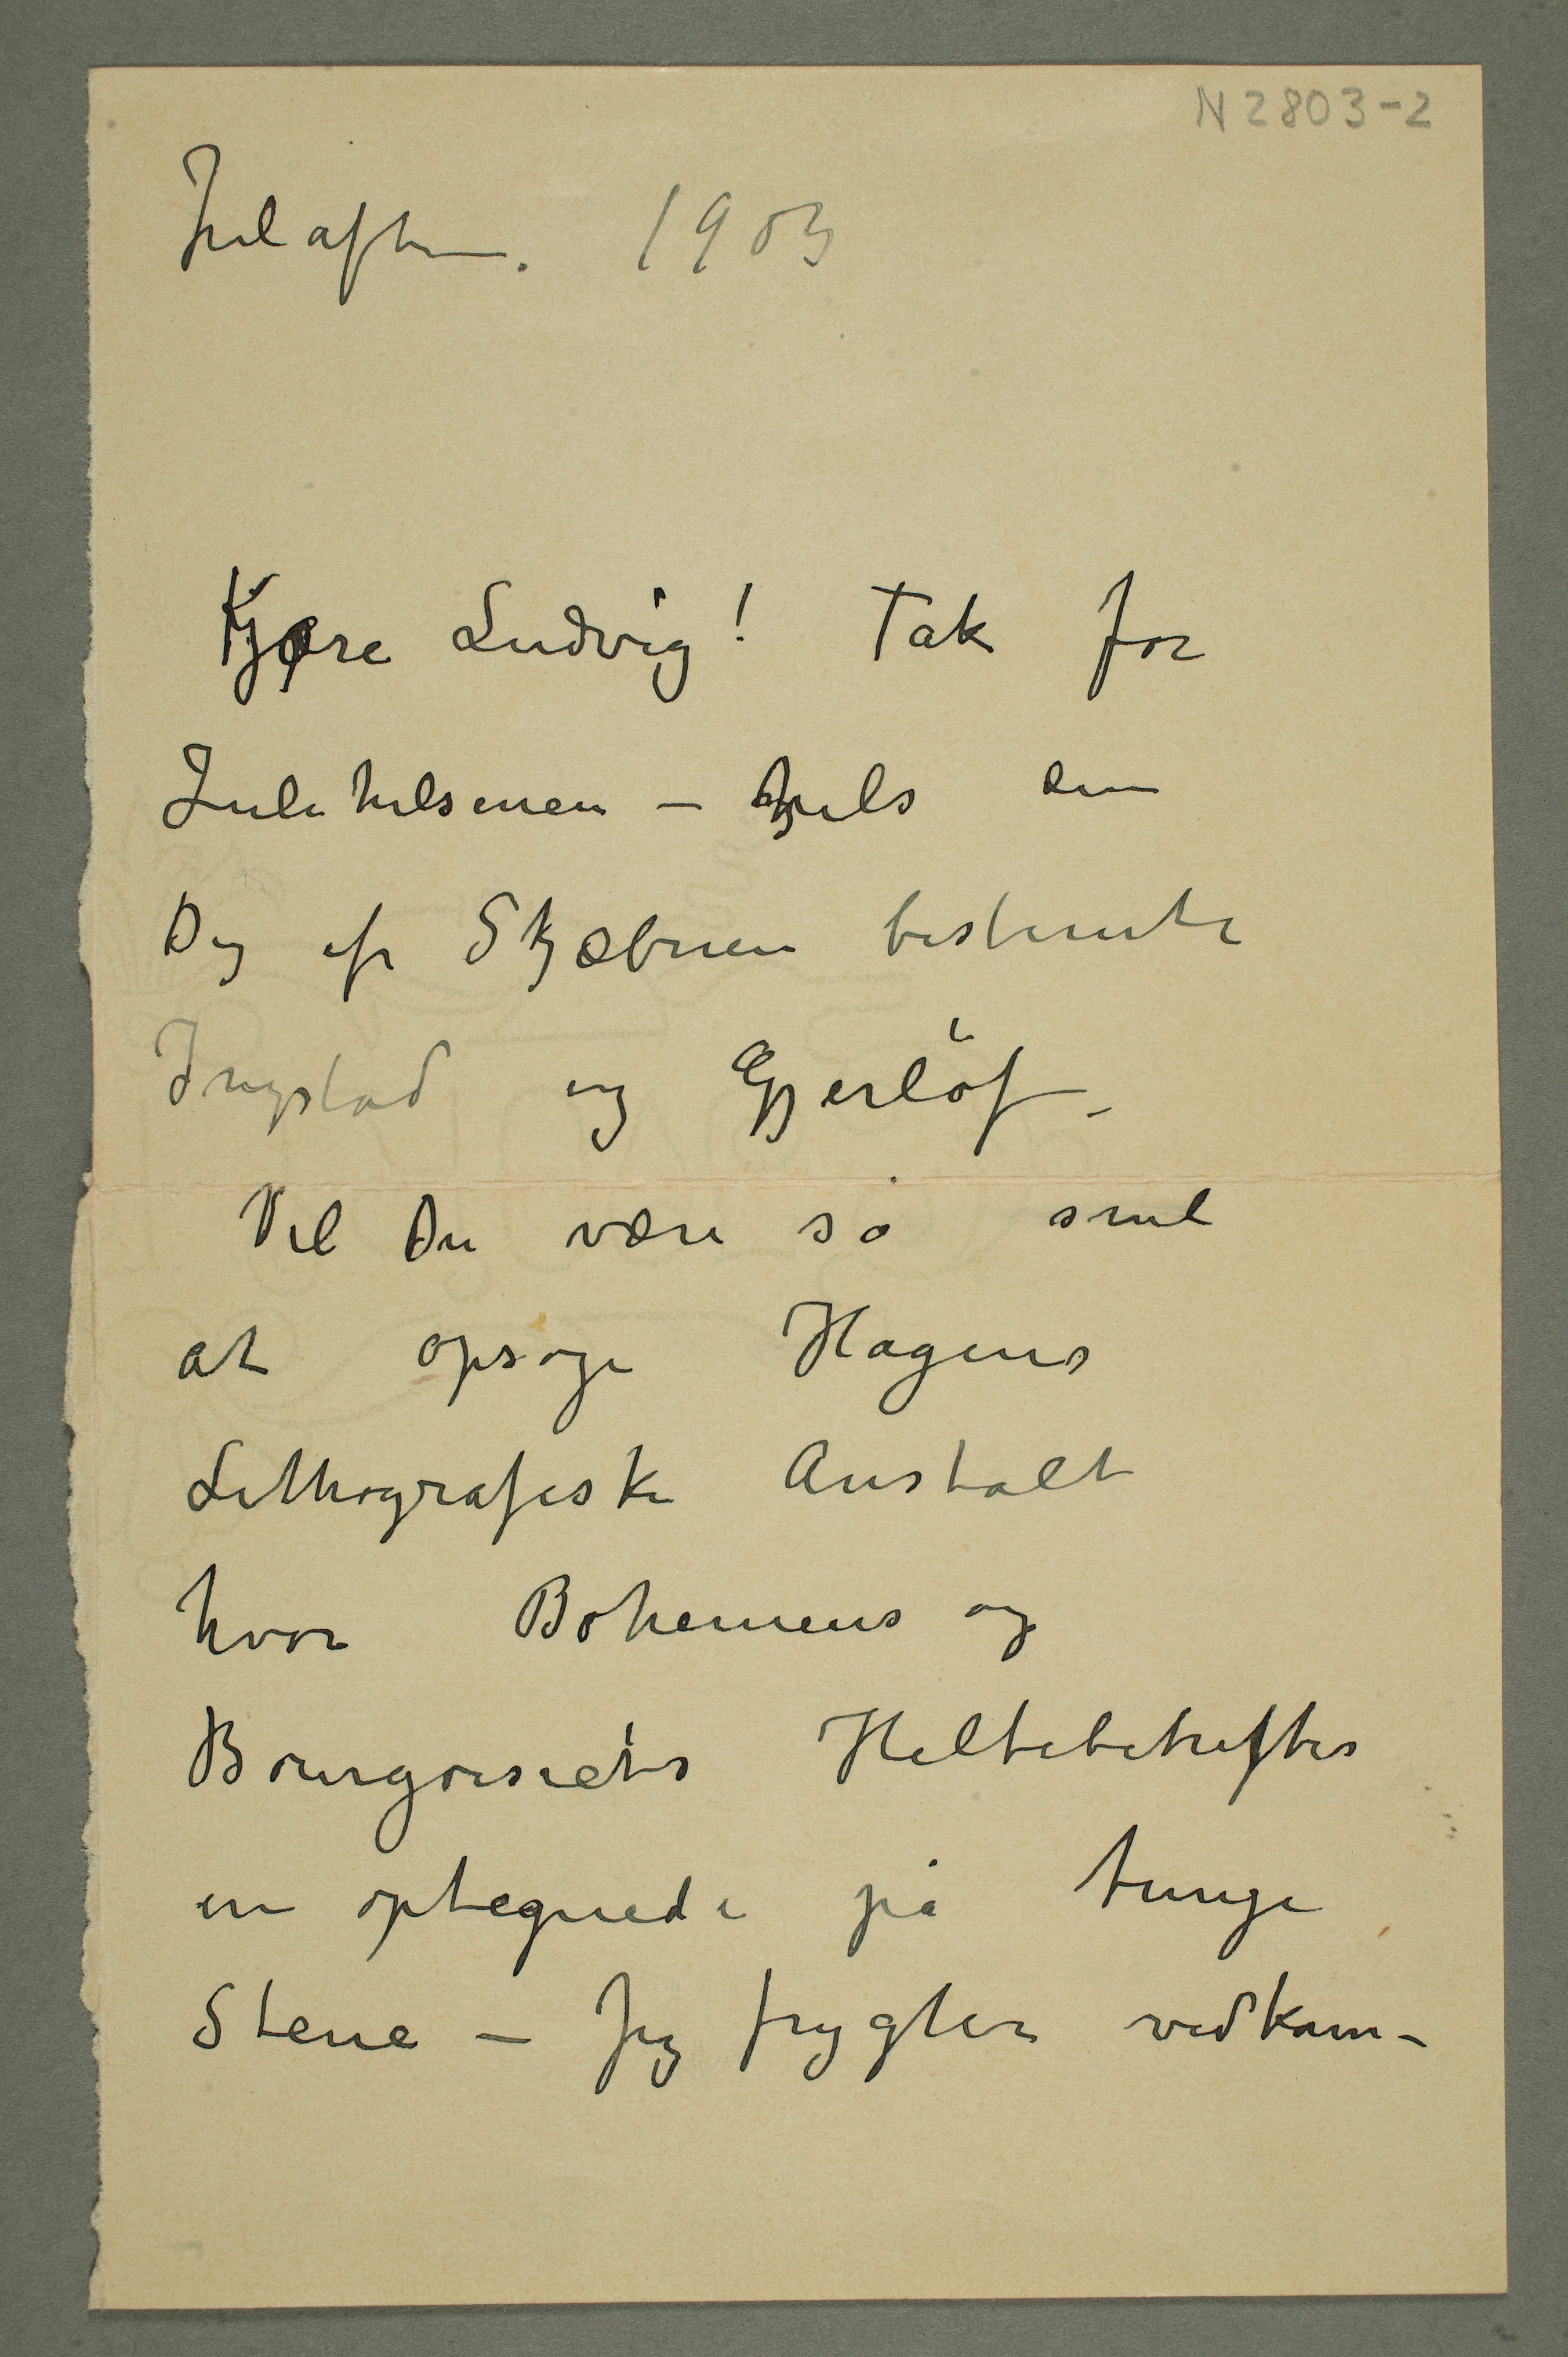 N 2803-2
Julaften. 1903
Kjære Ludvig! Tak for
Julehilsenen – hils den
Dig af Skjæbnen bestemte
Ingstad og Gjerløf –
Vil Du være så snil
at opsøge Hagens
Lithografiske Anstalt
hvor Bohemens og
Bourgoisiets Heltebedrifter
er optegnede på tunge
Stene – Jeg frygter vedkom-